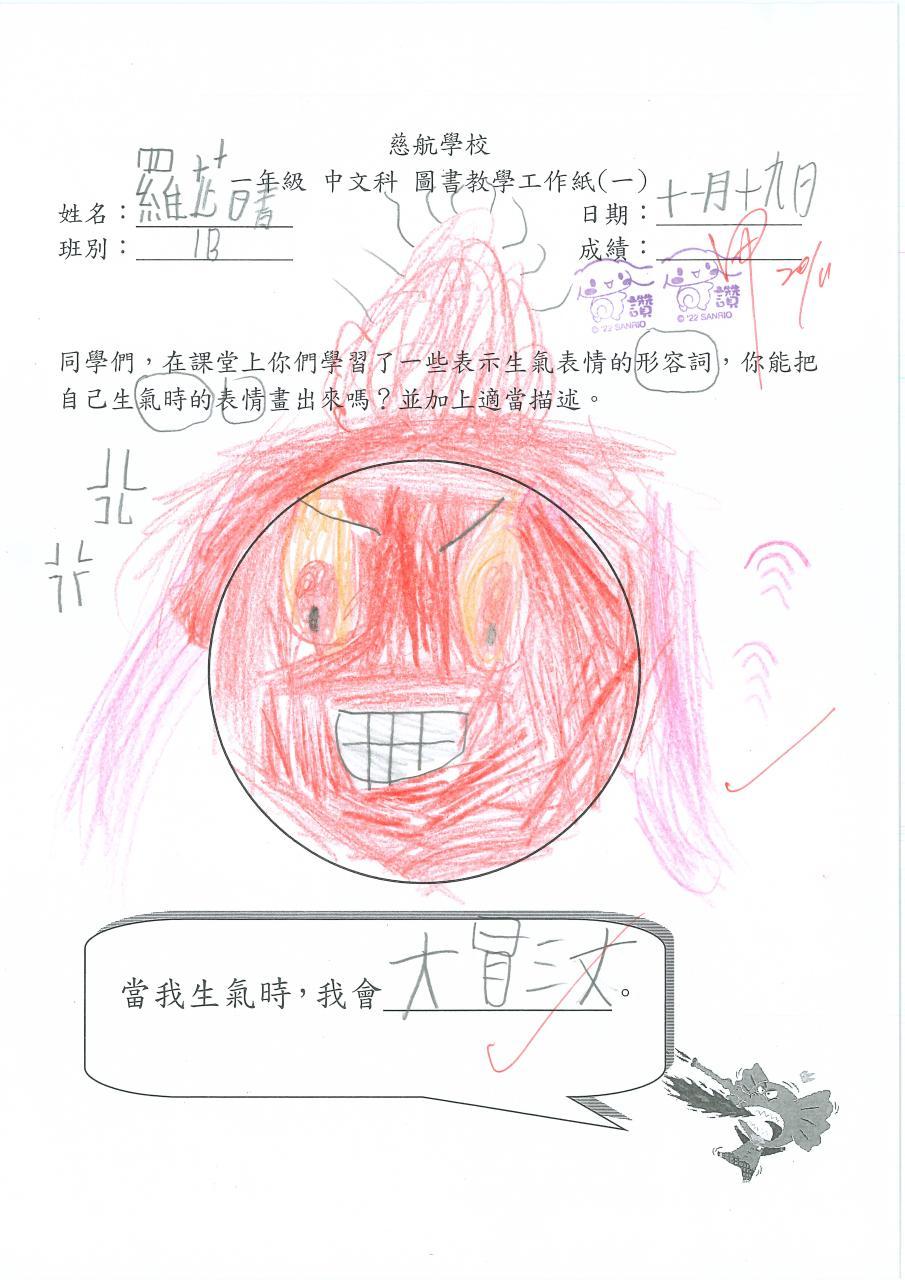 慈航學校
一年級 中文科 圖書教學工作紙(一)
姓名：羅芷晴 日期：十一月十九日
班別：1B 成績：
20/11
讚 讚
© '22 SANRIO © '22 SANRIO
同學們，在課堂上你們學習了一些表示生氣表情的形容詞，你能把
自己生氣時的表情畫出來嗎？並加上適當描述。
當我生氣時，我會大冒三丈。